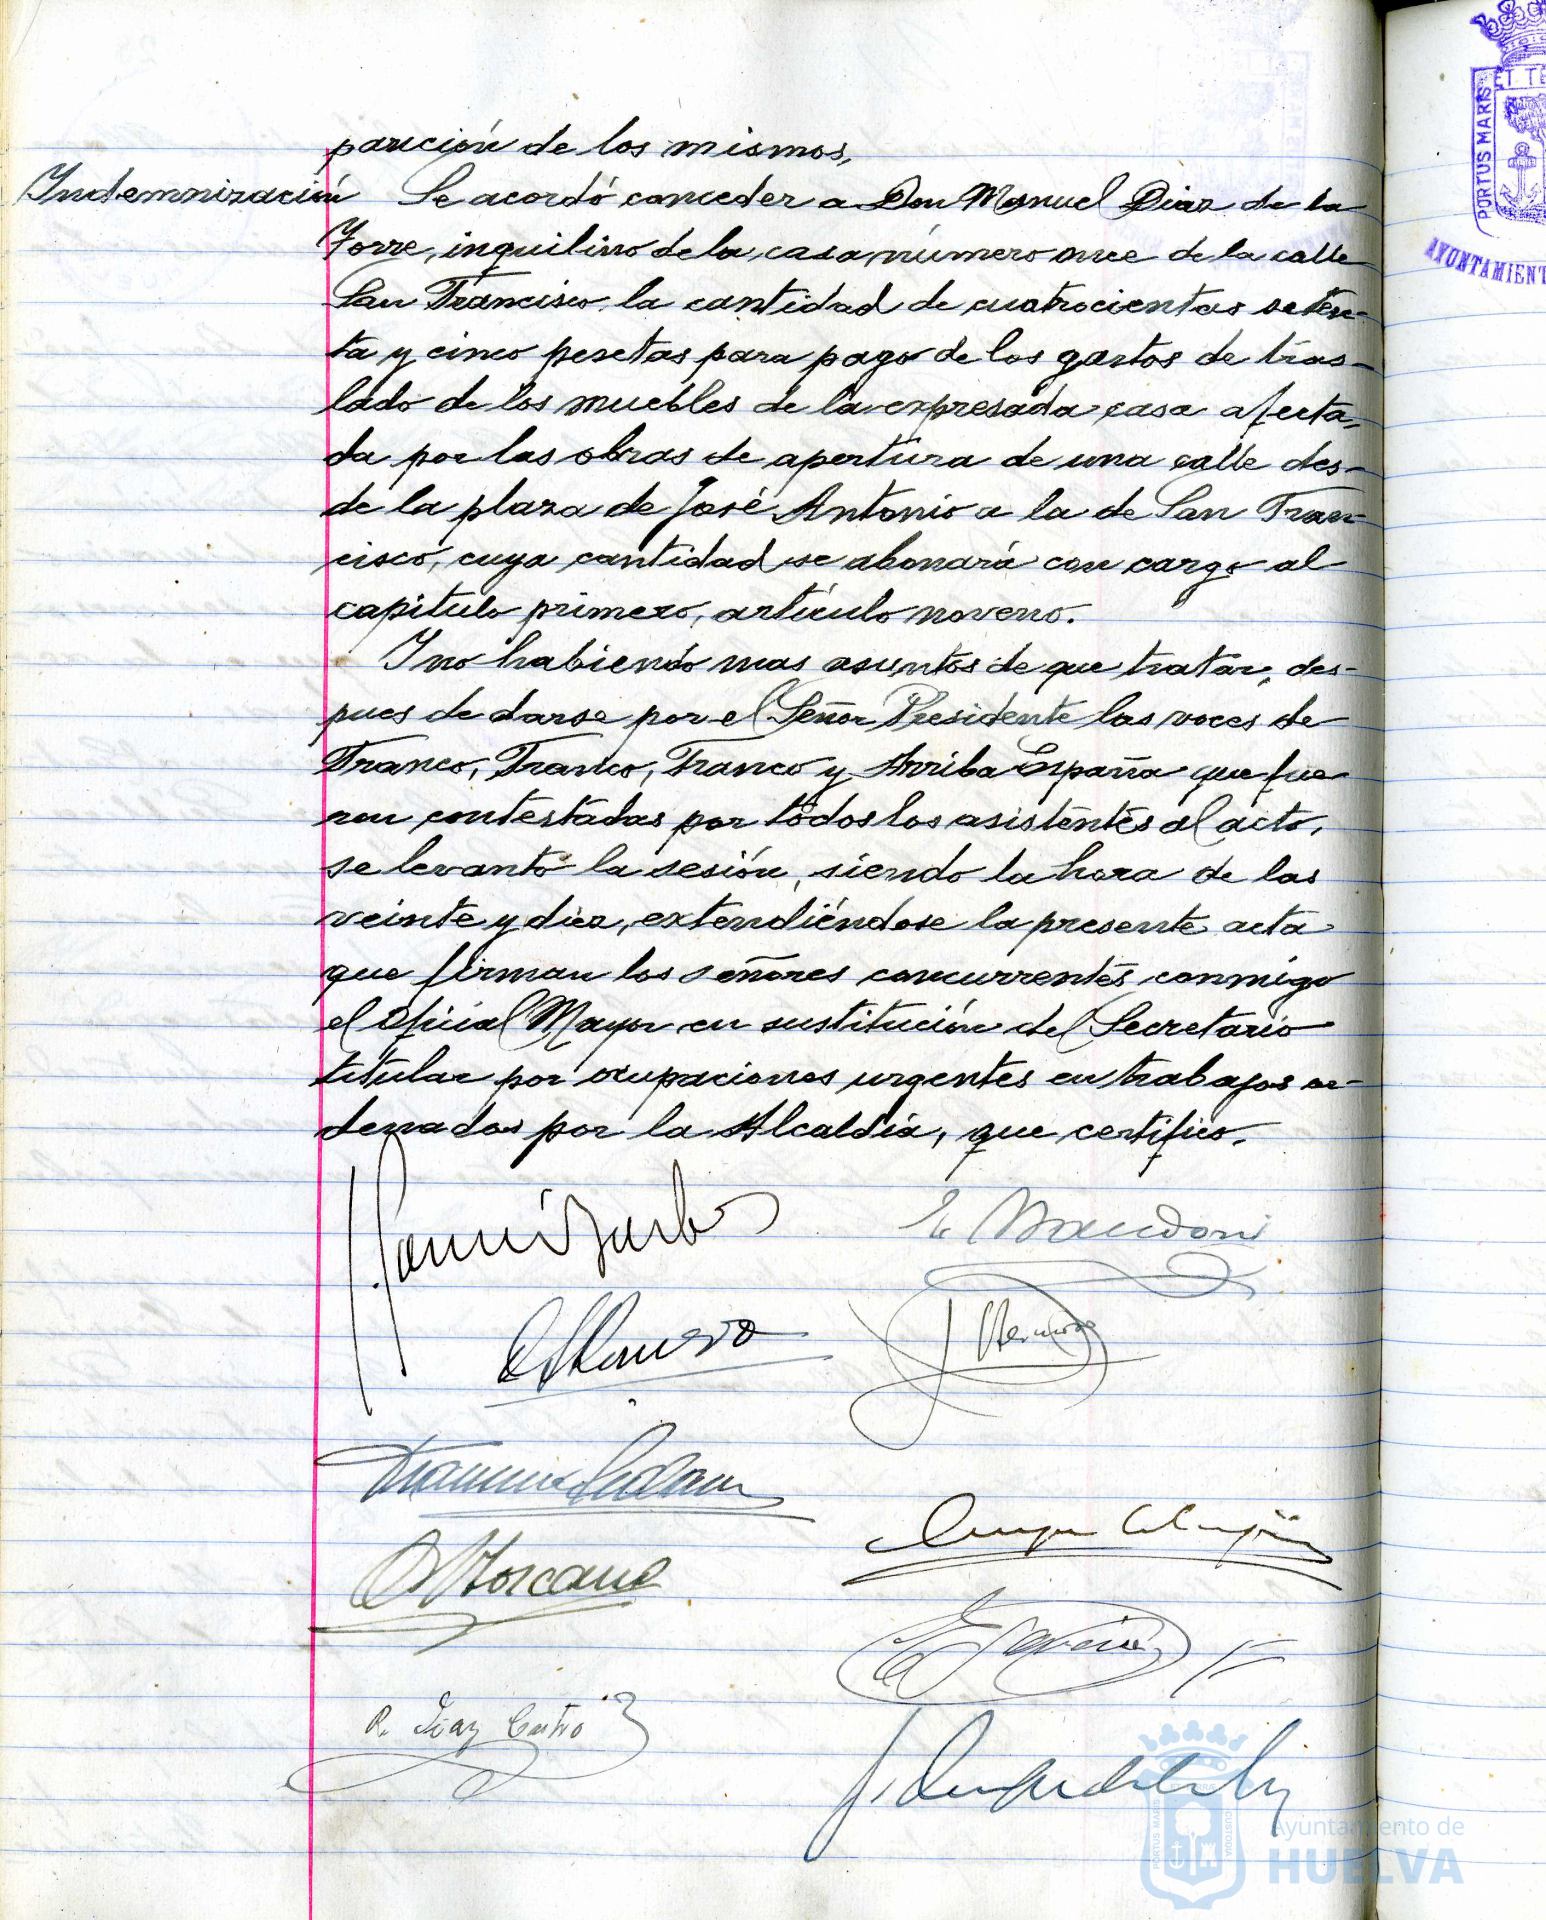 parición de los mismos,
Indemnización Se acordó conceder a Don Manuel Diaz de la
Torre, inquilino de la casa número once de la calle
San Francisco la cantidad de cuatrocientas seten-
ta y cinco pesetas para pago de los gastos de tras-
lado de los muebles de la expresada casa afecta-
da por las obras de apertura de una calle des-
de la plaza de José Antonio a la de San Fran-
cisco, cuya cantidad se abonará con cargo al
capitulo primero, artículo noveno.
Y no habiendo mas asuntos de que tratar, des-
pues de darse por el Señor Presidente las voces de
Franco, Franco, Franco y Arriba España que fue-
ron contestadas por todos los asistentes al acto,
se levantó la sesión, siendo la hora de las
veinte y diez, extendiéndose la presente acta
que firman los señores concurrentes conmigo
el Oficial Mayor en sustitución del Secretario
titular por ocupaciones urgentes en trabajos or-
denados por la Alcaldía, que certifico.
R. Diaz Castro
PORTUS MARIS ET TE
AYUNTAMIENT
PORTUS MARIS CUSTODIA
Ayuntamiento de
HUELVA